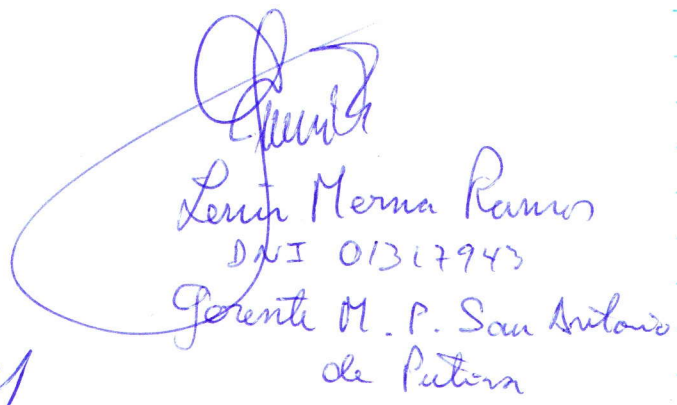 Lenin Merma Ramos
DNI 01317943
Gerente M. P. San Antonio
de Putina